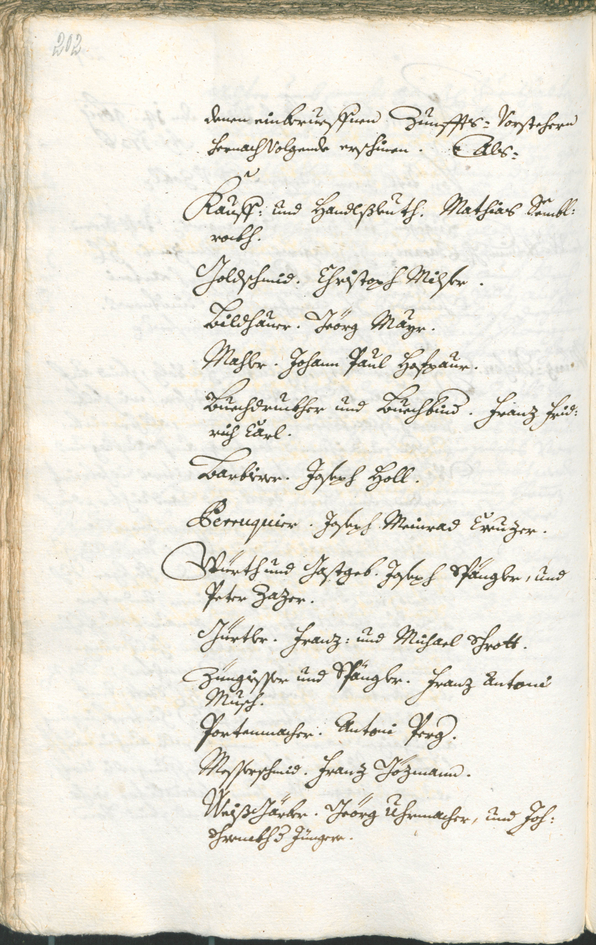 202
denen einberueffnen Zunffts=Vorstehern
hernachvolgende erschinen. Als=
Kauff: und Handlsleuth. Mathias Sembl:
roth.
Goldschmid. Christoph Milser.
Bildhauer. Geörg Mayr.
Mahler. Johann Paul Hofpaur.
Buechdruckher und Buechbind. Franz Frid:
rich Carl.
Barbierer. Joseph Holl.
Perruquier. Joseph Meinrad Creuzer.
Würth und Gastgeb. Joseph Spängler, und
Peter Zazer.
Gürtler. Franz: und Michael Schrott.
Züngiesser und Spängler. Franz Antoni
Musch.
Portenmacher. Antoni Perg.
Messerschmid. Franz Gözmann.
Weisgärber. Geörg Uhrmacher, und Joh:
Jünger.